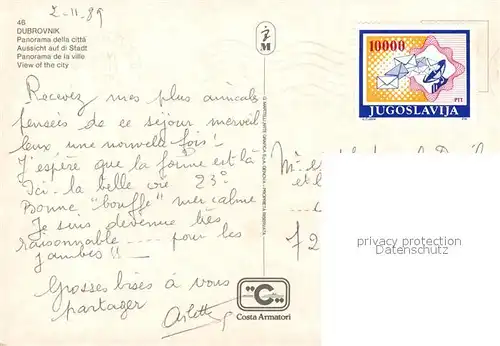 2-11-89
46
DUBROVNIK
Panorama della città
Aussicht auf di Stadt
Panorama de la ville
View of the city
Recevez mes plus amicales
pensées de ce séjour merveil
leux, une nouvelle fois!
J'espère que la forme est là
Ici - la belle vie 23°
Bonne "bouffe" mer calme
Je suis devenue très
raisonnable .... pour les
jambes!!
Grosses bises à vous
partager
Arlette
M
PROPRIETA RISERVATA
Costa Armatori
10000
PTT
JUGOSLAVIJA
privacy protection
Datenschutz